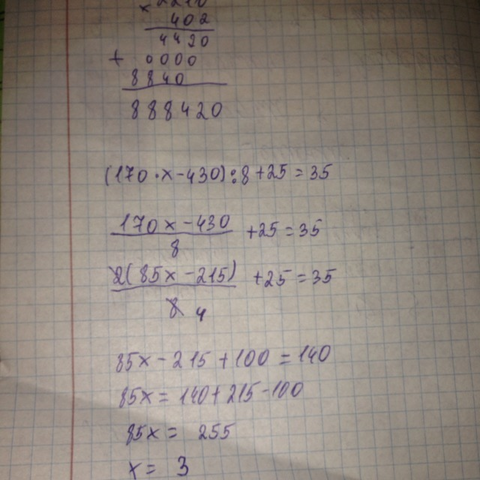 × 2210
402
4420
+ 0000
8840
888420
(170·x-430):8+25=35
170x-430
8
+25=35
2(85x-215)
8 4
+25=35
85x-215+100=140
85x=140+215-100
85x= 255
x= 3